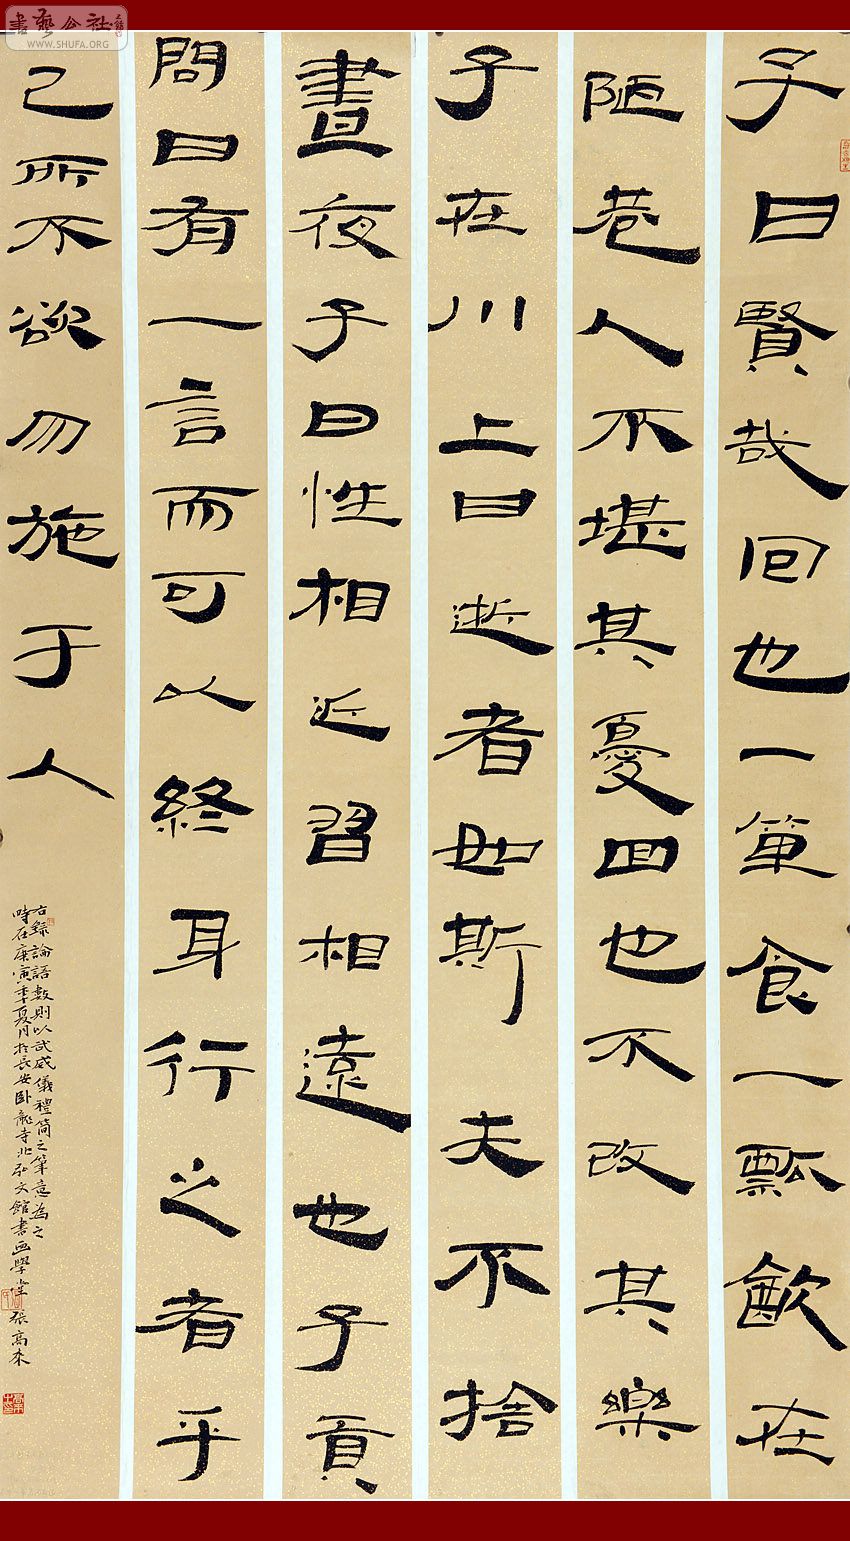 書藝公社
WWW.SHUFA.ORG
子曰賢哉回也一箪食一瓢飲在
陋巷人不堪其憂回也不改其樂
子在川上曰逝者如斯夫不捨
晝夜子曰性相近習相遠也子貢
問曰有一言而可以終身行之者乎
己所不欲勿施于人
右錄論語數則以武威儀禮简之筆意為之
時在庚寅季夏月於長安卧龍寺北弘文館書画學堂張高来